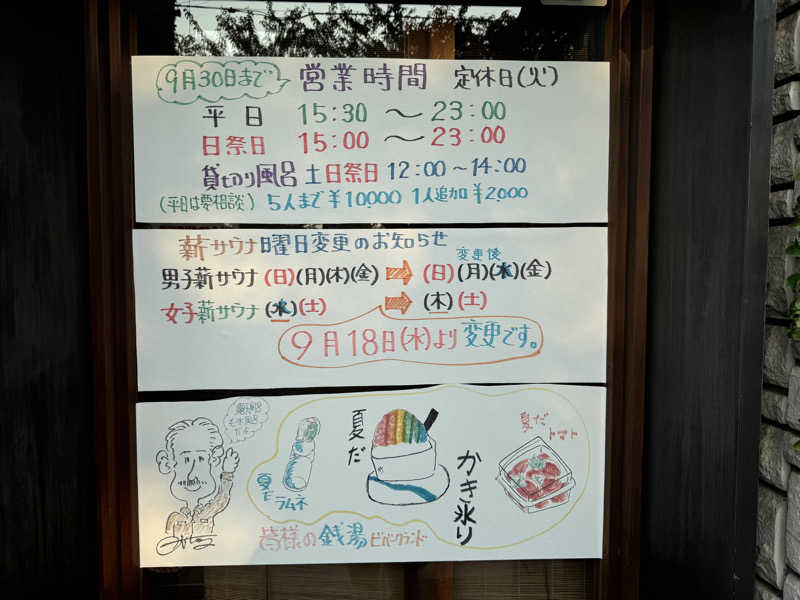 9月30日まで 営業時間 定休日(火)
平日 15:30 〜 23:00
日祭日 15:00 〜 23:00
貸切り風呂 土日祭日 12:00 〜 14:00
(平日は要相談) 5人まで ¥10,000 1人追加 ¥2,000
薪サウナ曜日変更のお知らせ
変更後
男子薪サウナ (日)(月)(木)(金) ➡ (日)(月)(水)(金)
女子薪サウナ (水)(土) ➡ (木)(土)
9月18日(水)より変更です。
夏だ ラムネ
夏だ かき氷り
夏だ トマト
皆様の銭湯 ビバークランド